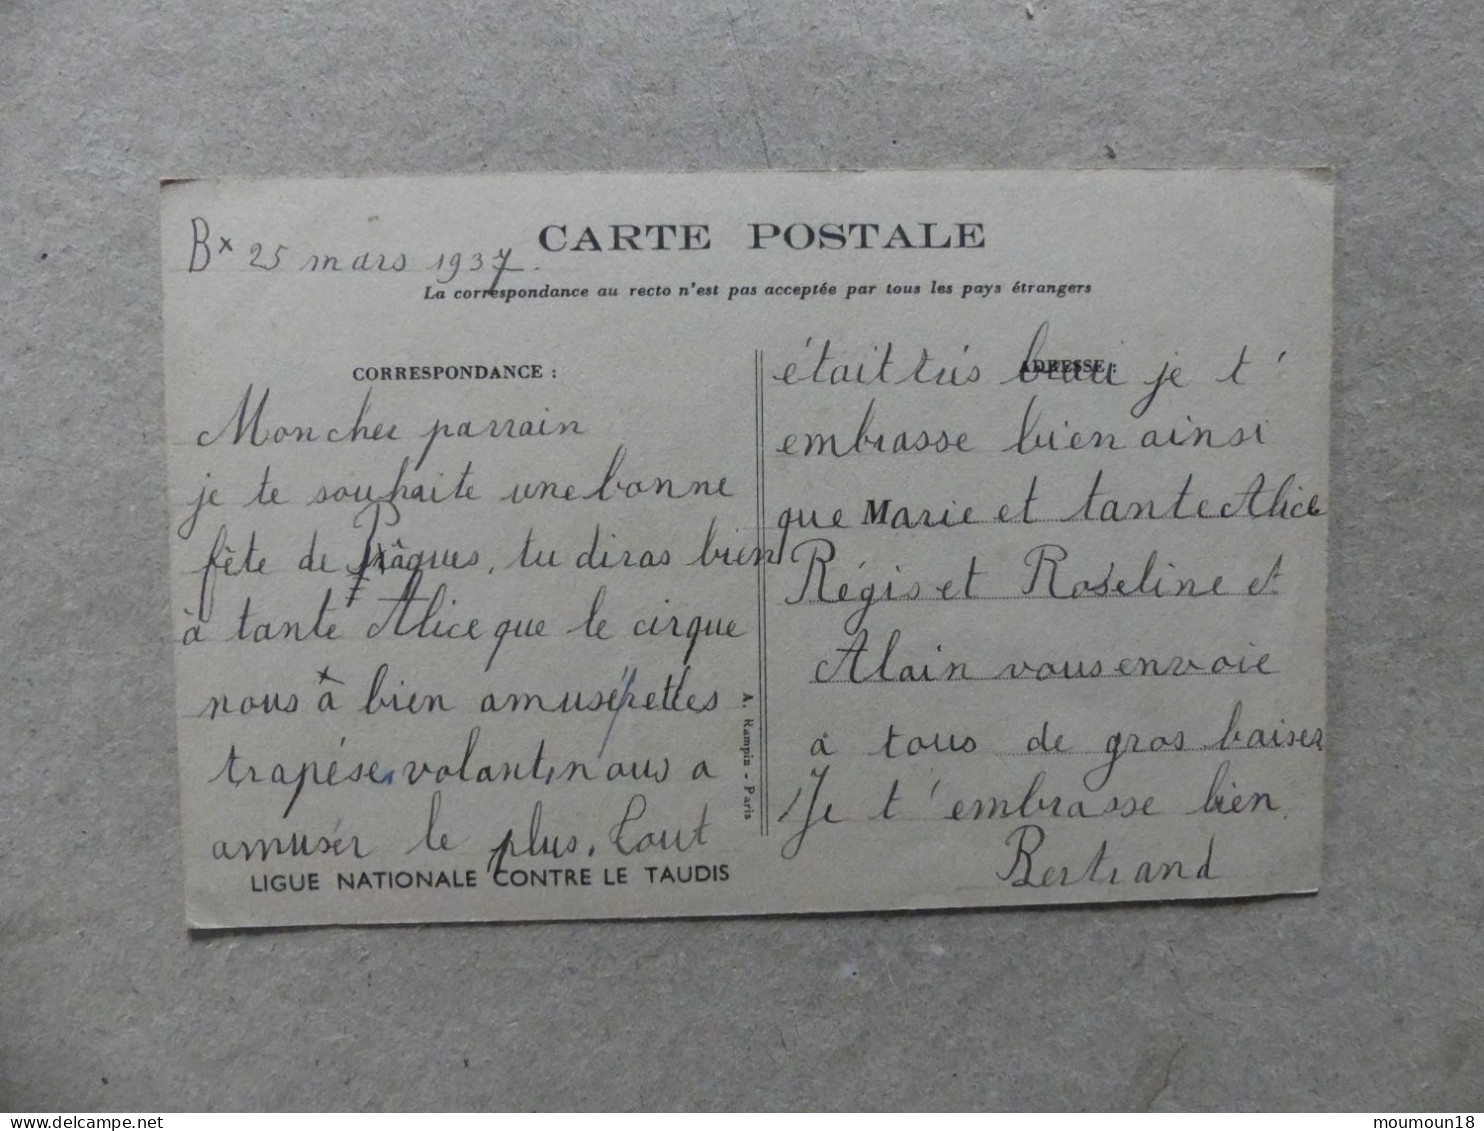 Bx 25 mars 1937.
CARTE POSTALE
La correspondance au recto n'est pas acceptée par tous les pays étrangers
CORRESPONDANCE :
Mon cher parrain
je te souhaite une bonne
fête de Pâques, tu diras bien
à tante Alice que le cirque
nous à bien amusé, les
trapése, volant, nous a
amusér le plus. Tout
LIGUE NATIONALE CONTRE LE TAUDIS
A. Rampin - Paris
ADRESSE :
était trés beau je t'
embrasse bien ainsi
que Marie et tante Alice
Régis et Roseline et
Alain vous envoie
a tous de gros baiser
Je t'embrasse bien
Bertrand
moumoun18